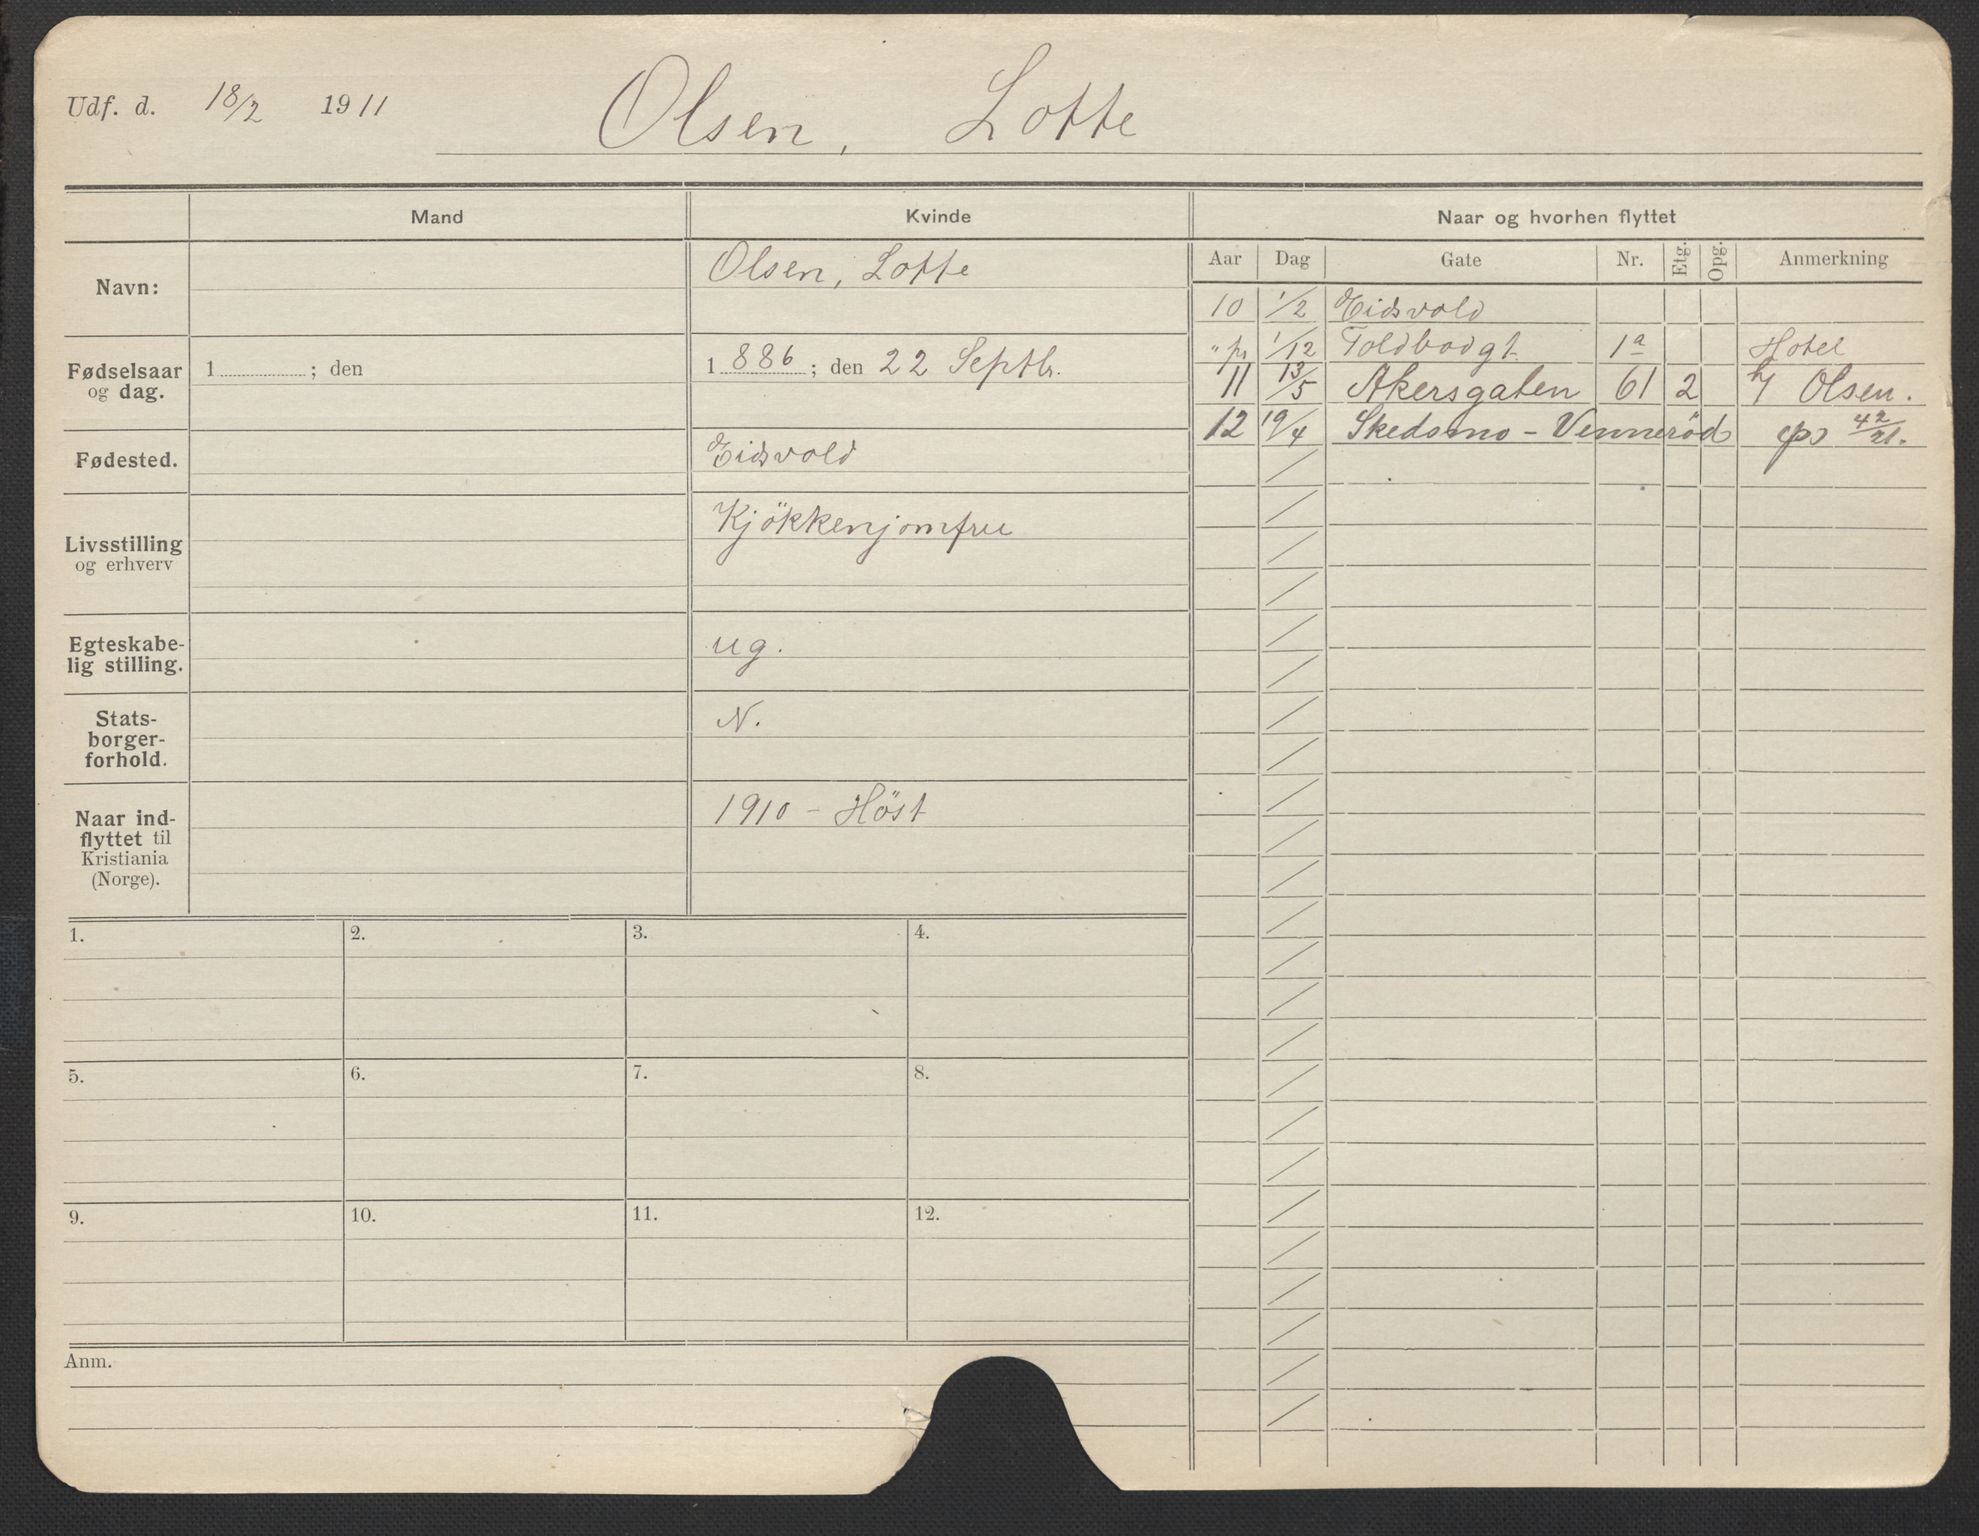 Udf. d. 18/2 1911 Olsen, Lotte
Mand Kvinde Naar og hvorhen flyttet
Aar Dag Gate Nr. Etg. Opg. Anmerkning
Navn: Olsen, Lotte
Fødselsaar og dag. 1 ; den 1 886 ; den 22 Septbr.
Fødested. Eidsvold
Livsstilling og erhverv Kjökkenjomfru
Egteskabe-
lig stilling. ug.
Stats-
borger-
forhold. N.
Naar ind-
flyttet til
Kristiania
(Norge). 1910 - Höst
10 1/2 Eidsvold
" 1/12 Toldbodgt. 1a Hotel
11 13/5 Akersgaten 61 2 h/ Olsen.
12 19/4 Skedsmo - Venneröd 42/21.
1. 2. 3. 4.
5. 6. 7. 8.
9. 10. 11. 12.
Anm.